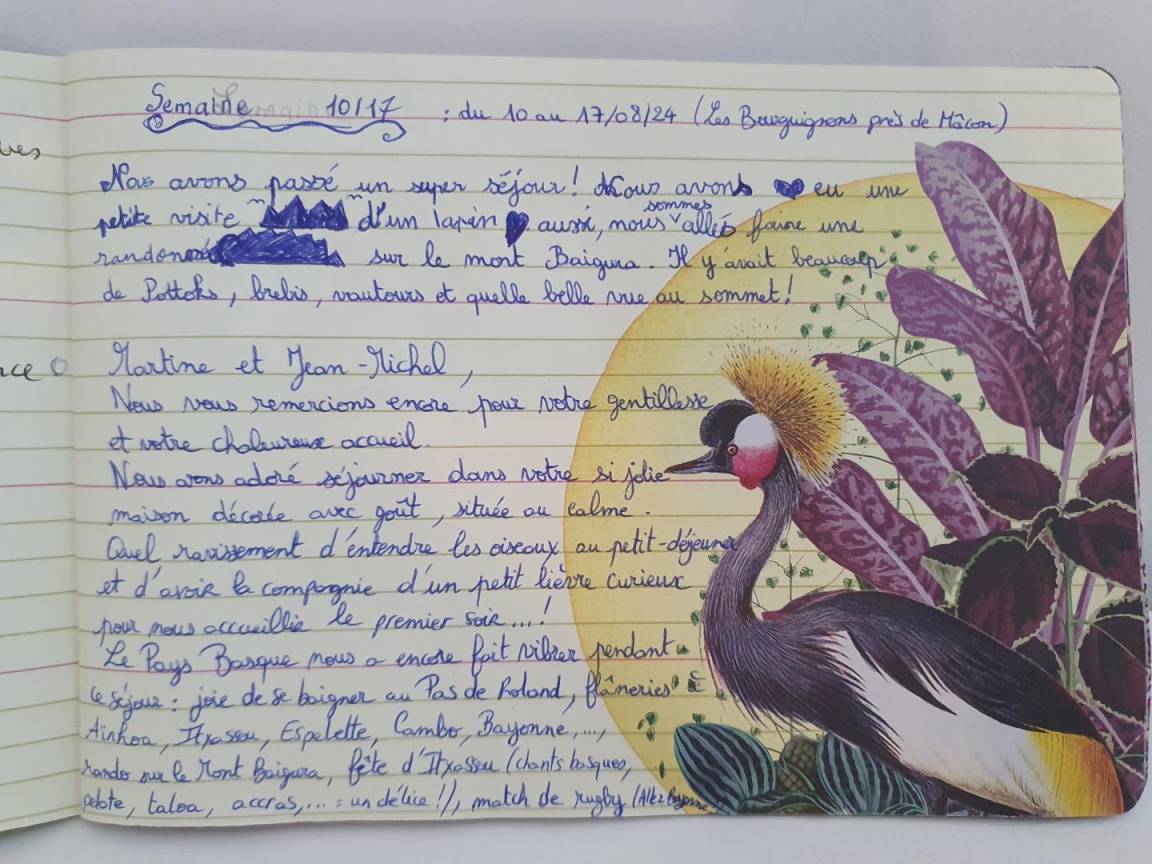 ves
nce
Semaine 10/17 : du 10 au 17/08/24 (Les Bourguignons près de Mâcon)
Nous avons passé un super séjour! Nous avons eu une
petite visite d'un lapin aussi, nous sommes allés faire une
randonnée sur le mont Baigura. Il y avait beaucoup
de Pottoks, brebis, vautours et quelle belle vue au sommet!
Martine et Jean-Michel,
Nous vous remercions encore pour votre gentillesse
et votre chaleureux accueil.
Nous avons adoré séjourner dans votre si jolie
maison décorée avec goût, située au calme.
Quel ravissement d'entendre les oiseaux au petit-déjeuner
et d'avoir la compagnie d'un petit lièvre curieux
pour nous accueillir le premier soir...!
Le Pays Basque nous a encore fait vibrer pendant
ce séjour: joie de se baigner au Pas de Roland, flâneries à
Aïnhoa, Itxassou, Espelette, Cambo, Bayonne,...,
rando sur le Mont Baigura, fête d'Itxassou (chants basques,
pelote, taloa, accras,... = un délice!), match de rugby (Allez Bayonne)